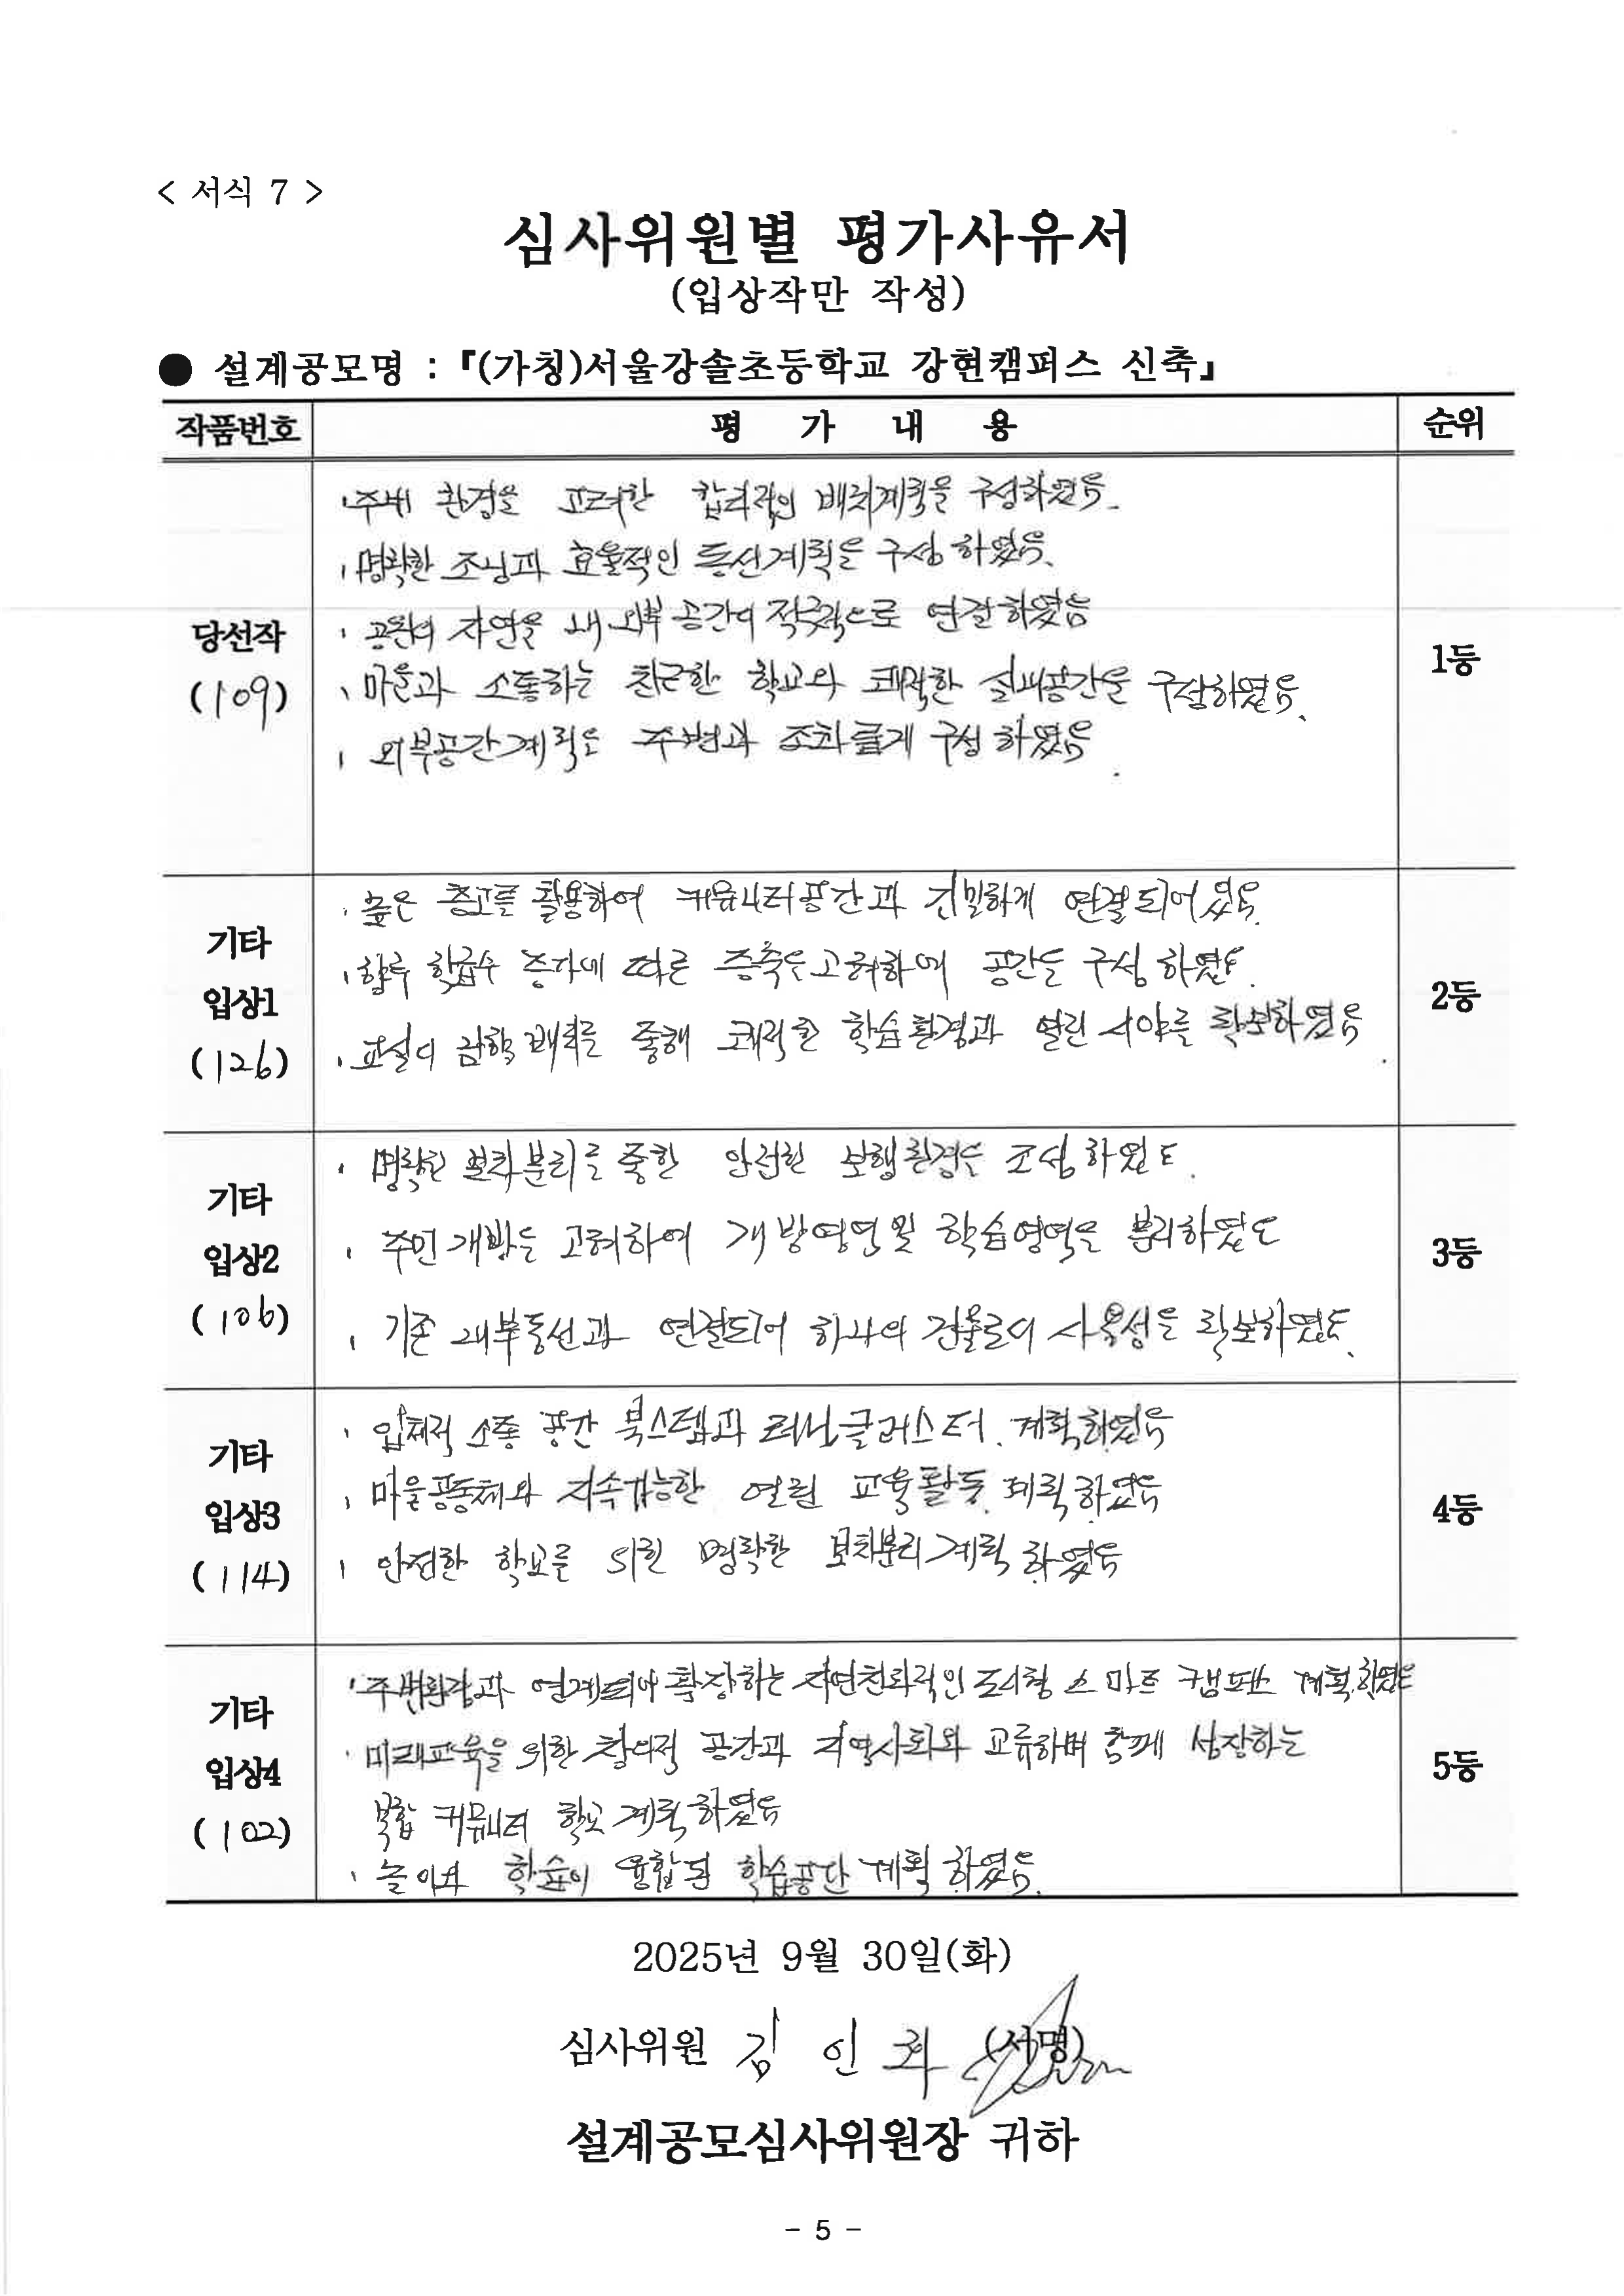 < 서식 7 >
심사위원별 평가사유서
(입상작만 작성)
● 설계공모명 : 『(가칭)서울강솔초등학교 강현캠퍼스 신축』
작품번호 평 가 내 용 순위
당선작
(109)
· 주변 환경을 고려한 합리적인 배치계획을 구성하였음.
· 명확한 조닝과 효율적인 동선계획을 구성 하였음.
· 공원의 자연을 내·외부 공간에 적극적으로 연결하였음
· 마을과 소통하는 친근한 학교와 쾌적한 실내공간을 구성하였음.
· 외부공간계획은 주변과 조화롭게 구성 하였음.
1등
기타
입상1
(126)
· 높은 층고를 활용하여 커뮤니티공간과 긴밀하게 연결되어 있음.
· 향후 학급수 증가에 따른 증축을 고려하여 공간을 구성 하였음.
· 교실의 남향 배치를 통해 쾌적한 학습환경과 열린 시야를 확보하였음.
2등
기타
입상2
(106)
· 명확한 보차분리를 통한 안전한 보행환경을 조성 하였음.
· 주민개방을 고려하여 개방영역 및 학습영역을 분리하였음
· 기존 내부동선과 연결되어 하나의 건물로의 사용성을 확보하였음.
3등
기타
입상3
(114)
· 입체적 소통 공간 북스텝과 러닝클러스터 계획하였음
· 마을공동체와 지속가능한 열린 교육활동 계획하였음
· 안전한 학교를 위한 명확한 보차분리계획 하였음
4등
기타
입상4
(102)
· 주변환경과 연계되어 확장하는 자연친화적인 도시형 스마트 캠퍼스 계획하였음
· 미래교육을 위한 창의적 공간과 지역사회와 교류하며 함께 성장하는
복합 커뮤니티 학교 계획하였음
· 놀이와 학습이 융합된 학습공간 계획 하였음.
5등
2025년 9월 30일(화)
심사위원 김 인 (서명)
설계공모심사위원장 귀하
- 5 -